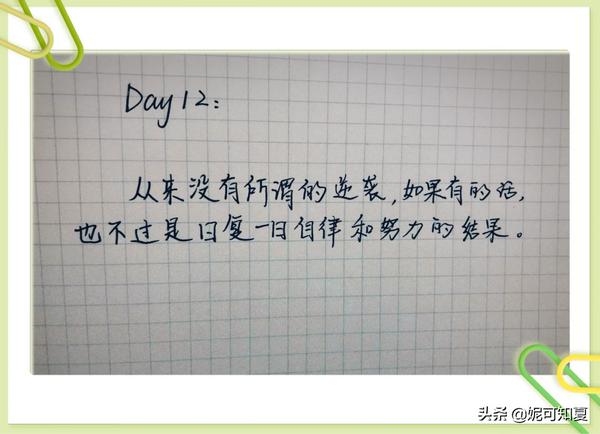 Day 12:
从来没有所谓的逆袭,如果有的话,
也不过是日复一日自律和努力的结果。
头条 @妮可知夏